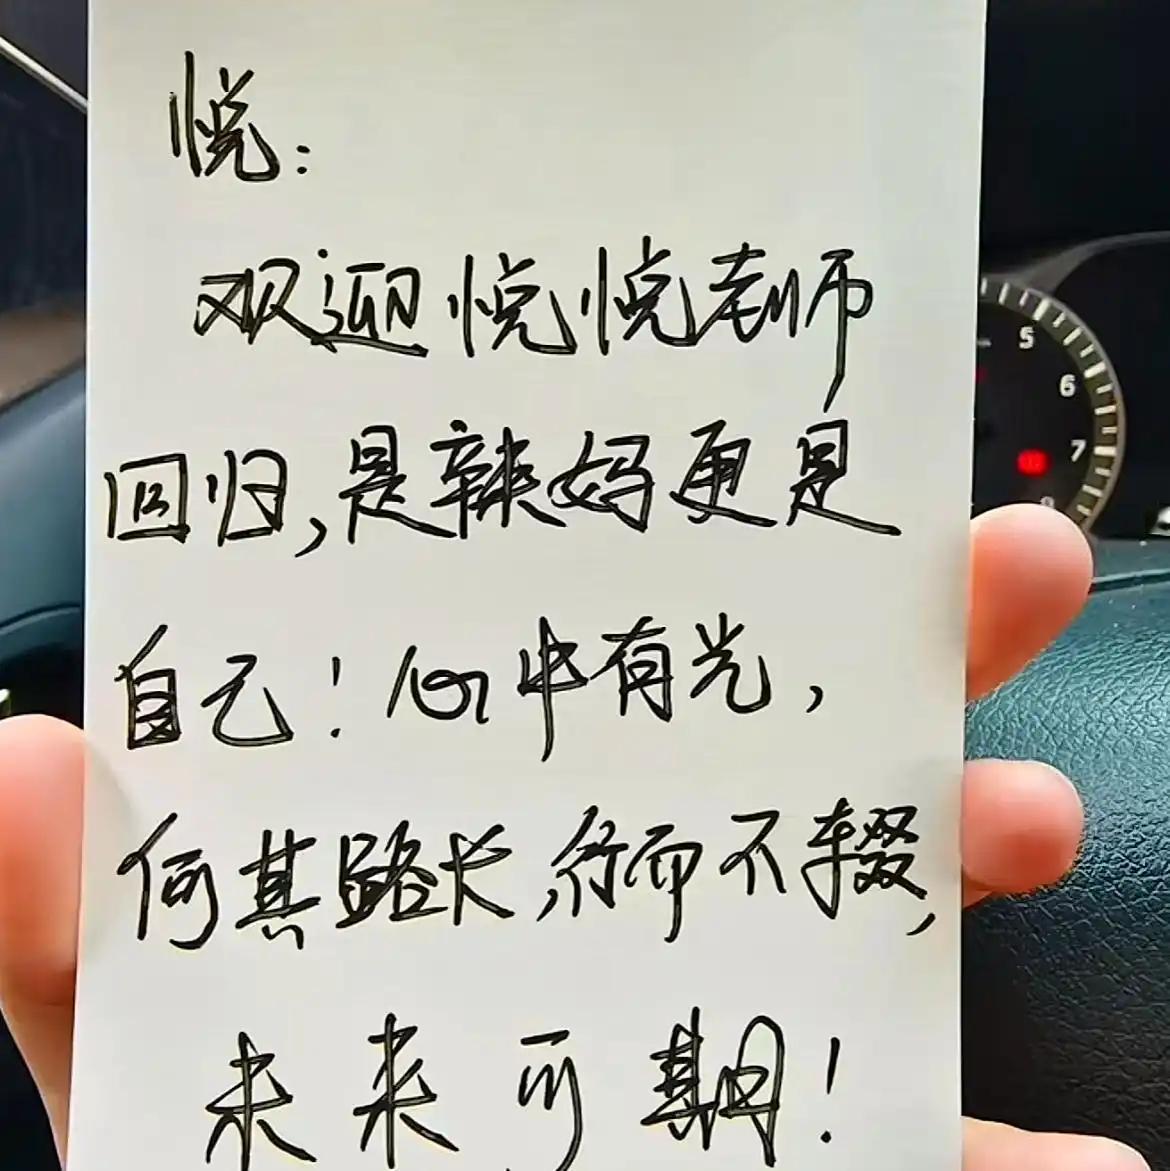 悦：
欢迎悦悦老师
回归，是辣妈更是
自己！心中有光，
何其路长，行而不辍，
未来可期！
5
6
7
8